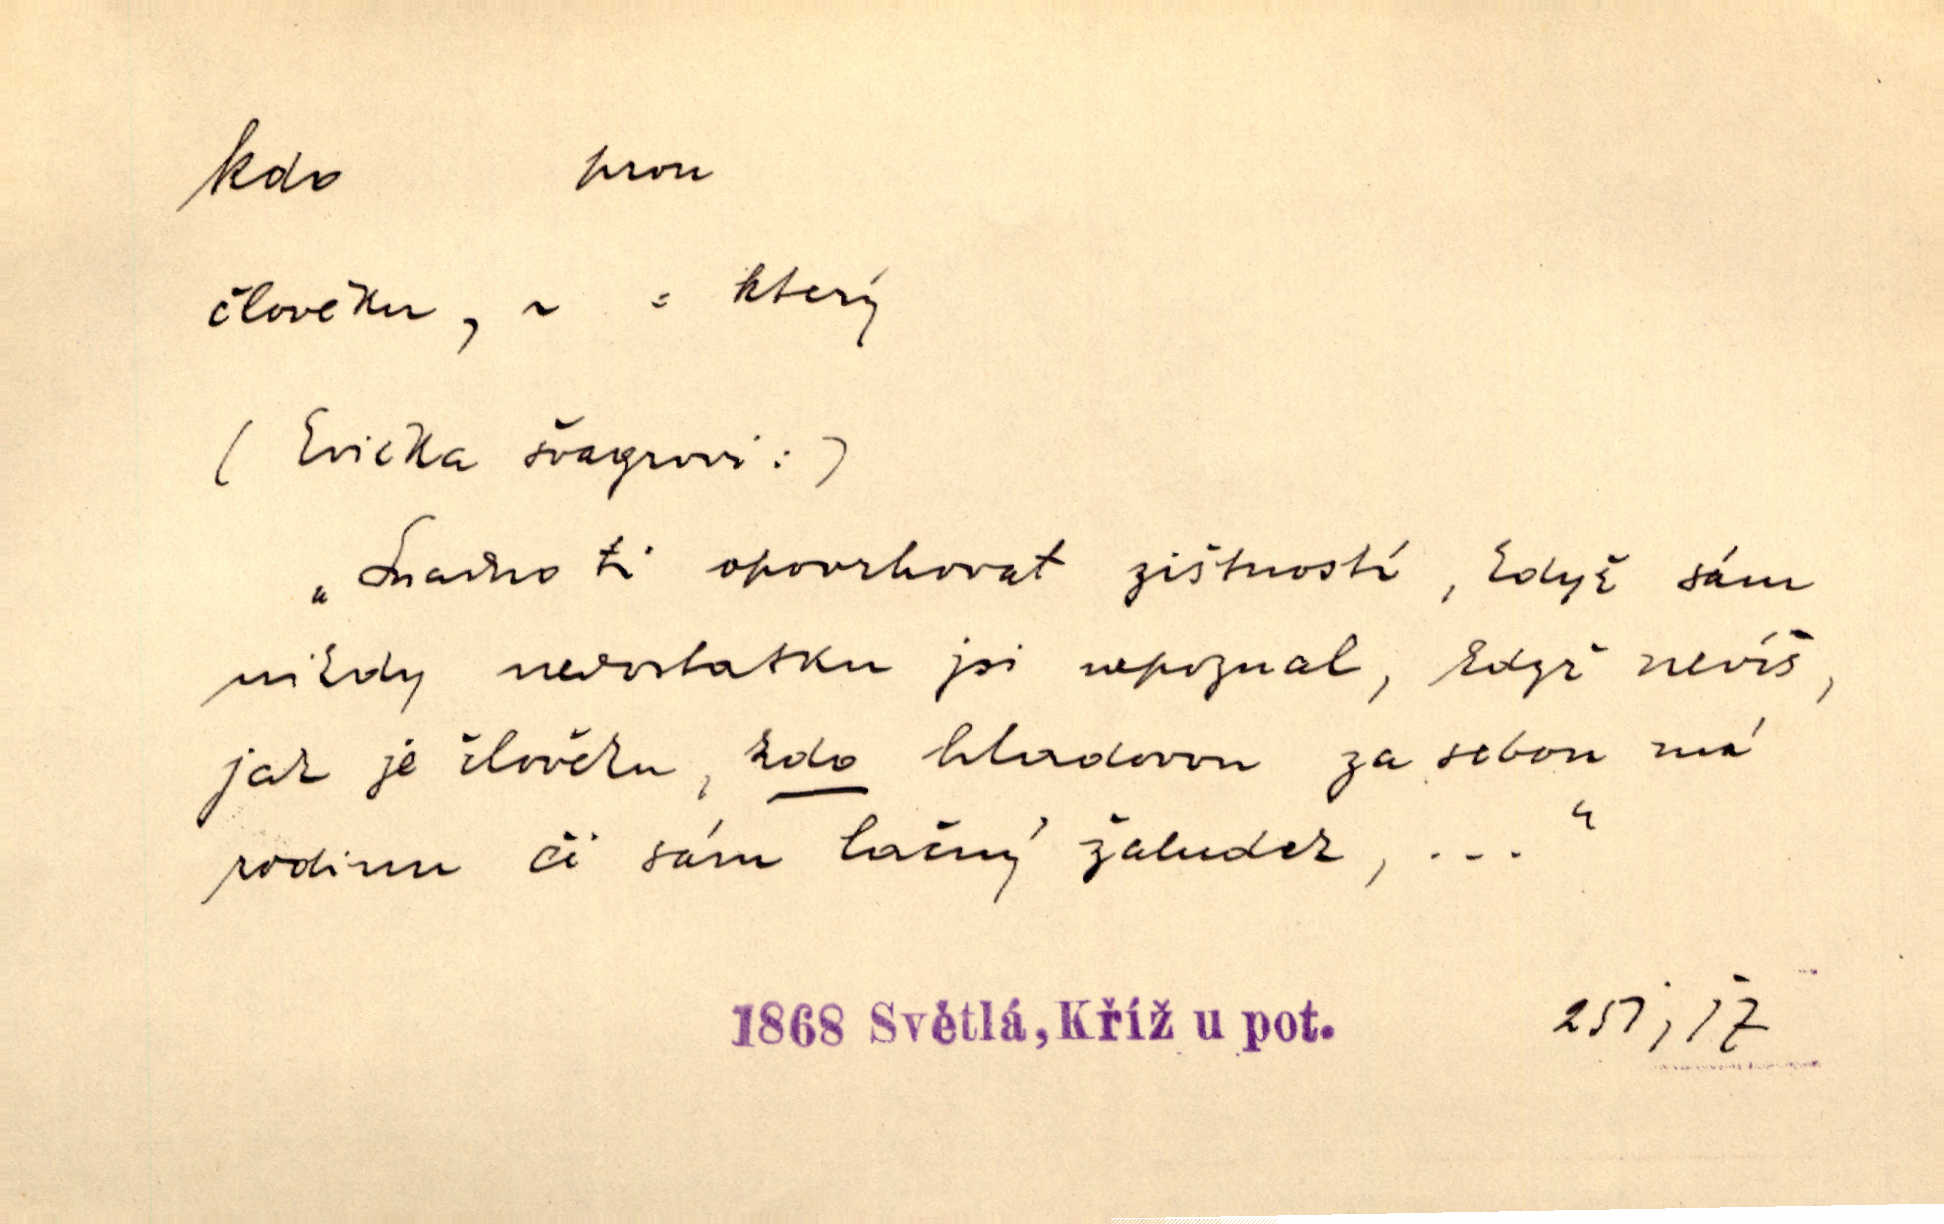 kdo pron
člověku, ~ = který
(Evička švagrovi:)
„Snadno ti opovrhovat zištností, když sám
nikdy nedostatku jsi nepoznal, když nevíš,
jak je člověku, kdo hladovou za sebou má
rodinu či sám lačný žaludek, ..."
1868 Světlá, Kříž u pot. 251, 17